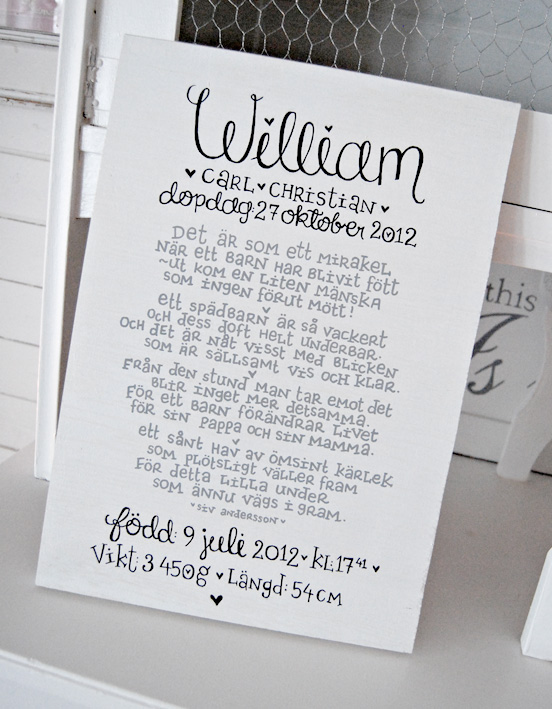 William
♥ CARL ♥ CHRISTIAN ♥
dopdag: 27 oktober 2012
Det är som ett mirakel
när ett barn har blivit fött
~ut kom en liten mänska
som ingen förut mött!
ett spädbarn är så vackert
och dess doft helt underbar.
och det är nåt visst med blicken
som är sällsamt vis och klar.
Från den stund man tar emot det
blir inget mer detsamma.
För ett barn förändrar livet
för sin pappa och sin mamma.
ett sånt hav av ömsint kärlek
som plötsligt väller fram
för detta lilla under
som ännu vägs i gram.
♥siv andersson♥
född: 9 juli 2012 ♥ kl:17⁴¹ ♥
Vikt: 3 450g ♥ Längd: 54cm
♥
this